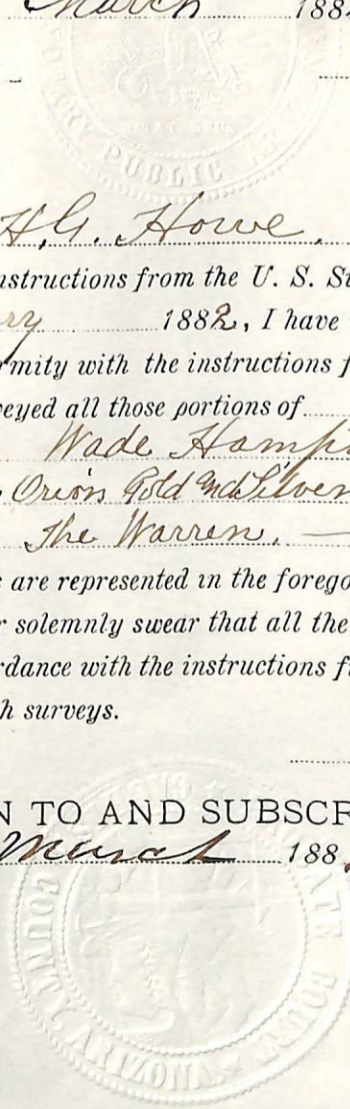 March 188
NOTARY PUBLIC
H. G. Howe.
nstructions from the U. S. Su
ry 1882, I have
rmity with the instructions f
veyed all those portions of
Wade Hamp
Orion Gold and Silver
The Warren. —
s are represented in the forego
r solemnly swear that all the
rdance with the instructions f
h surveys.
N TO AND SUBSCR
March 188
COUNTY, ARIZONA.